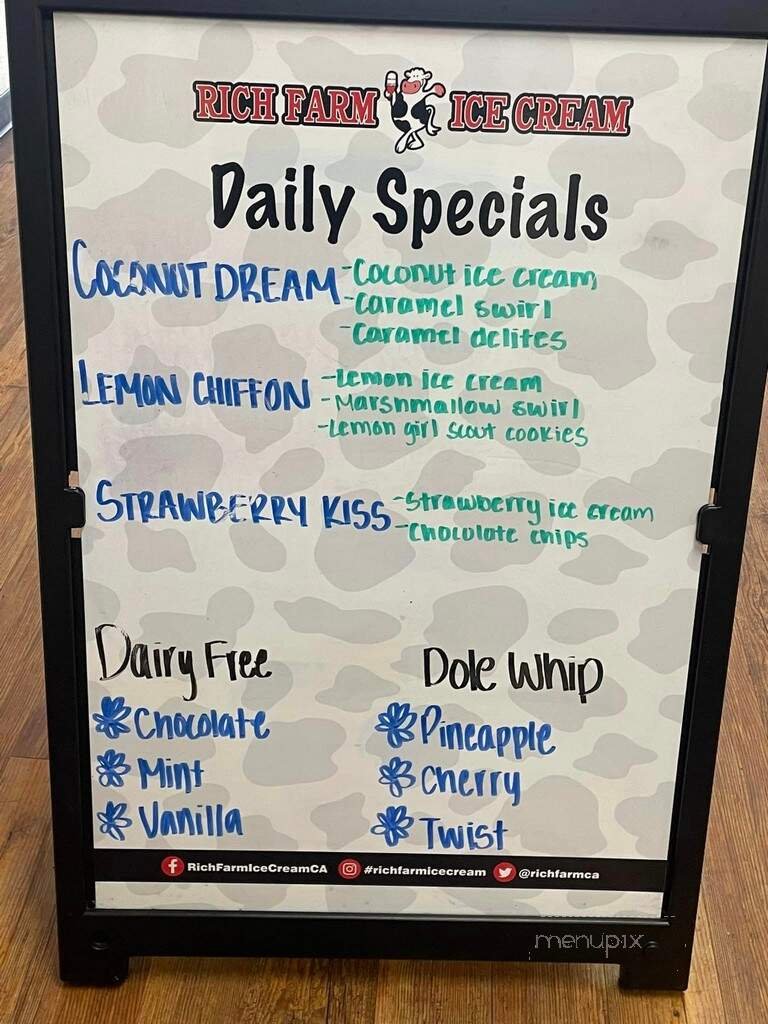 RICH FARM ICE CREAM
Daily Specials
COCONUT DREAM -Coconut ice cream
-caramel swirl
-Caramel delites
LEMON CHIFFON -Lemon ice cream
-Marshmallow swirl
-Lemon girl scout cookies
STRAWBERRY KISS -Strawberry ice cream
-Chocolate chips
Dairy Free
Chocolate
Mint
Vanilla
Dole Whip
Pineapple
Cherry
Twist
RichFarmIceCreamCA #richfarmicecream @richfarmca
menupix